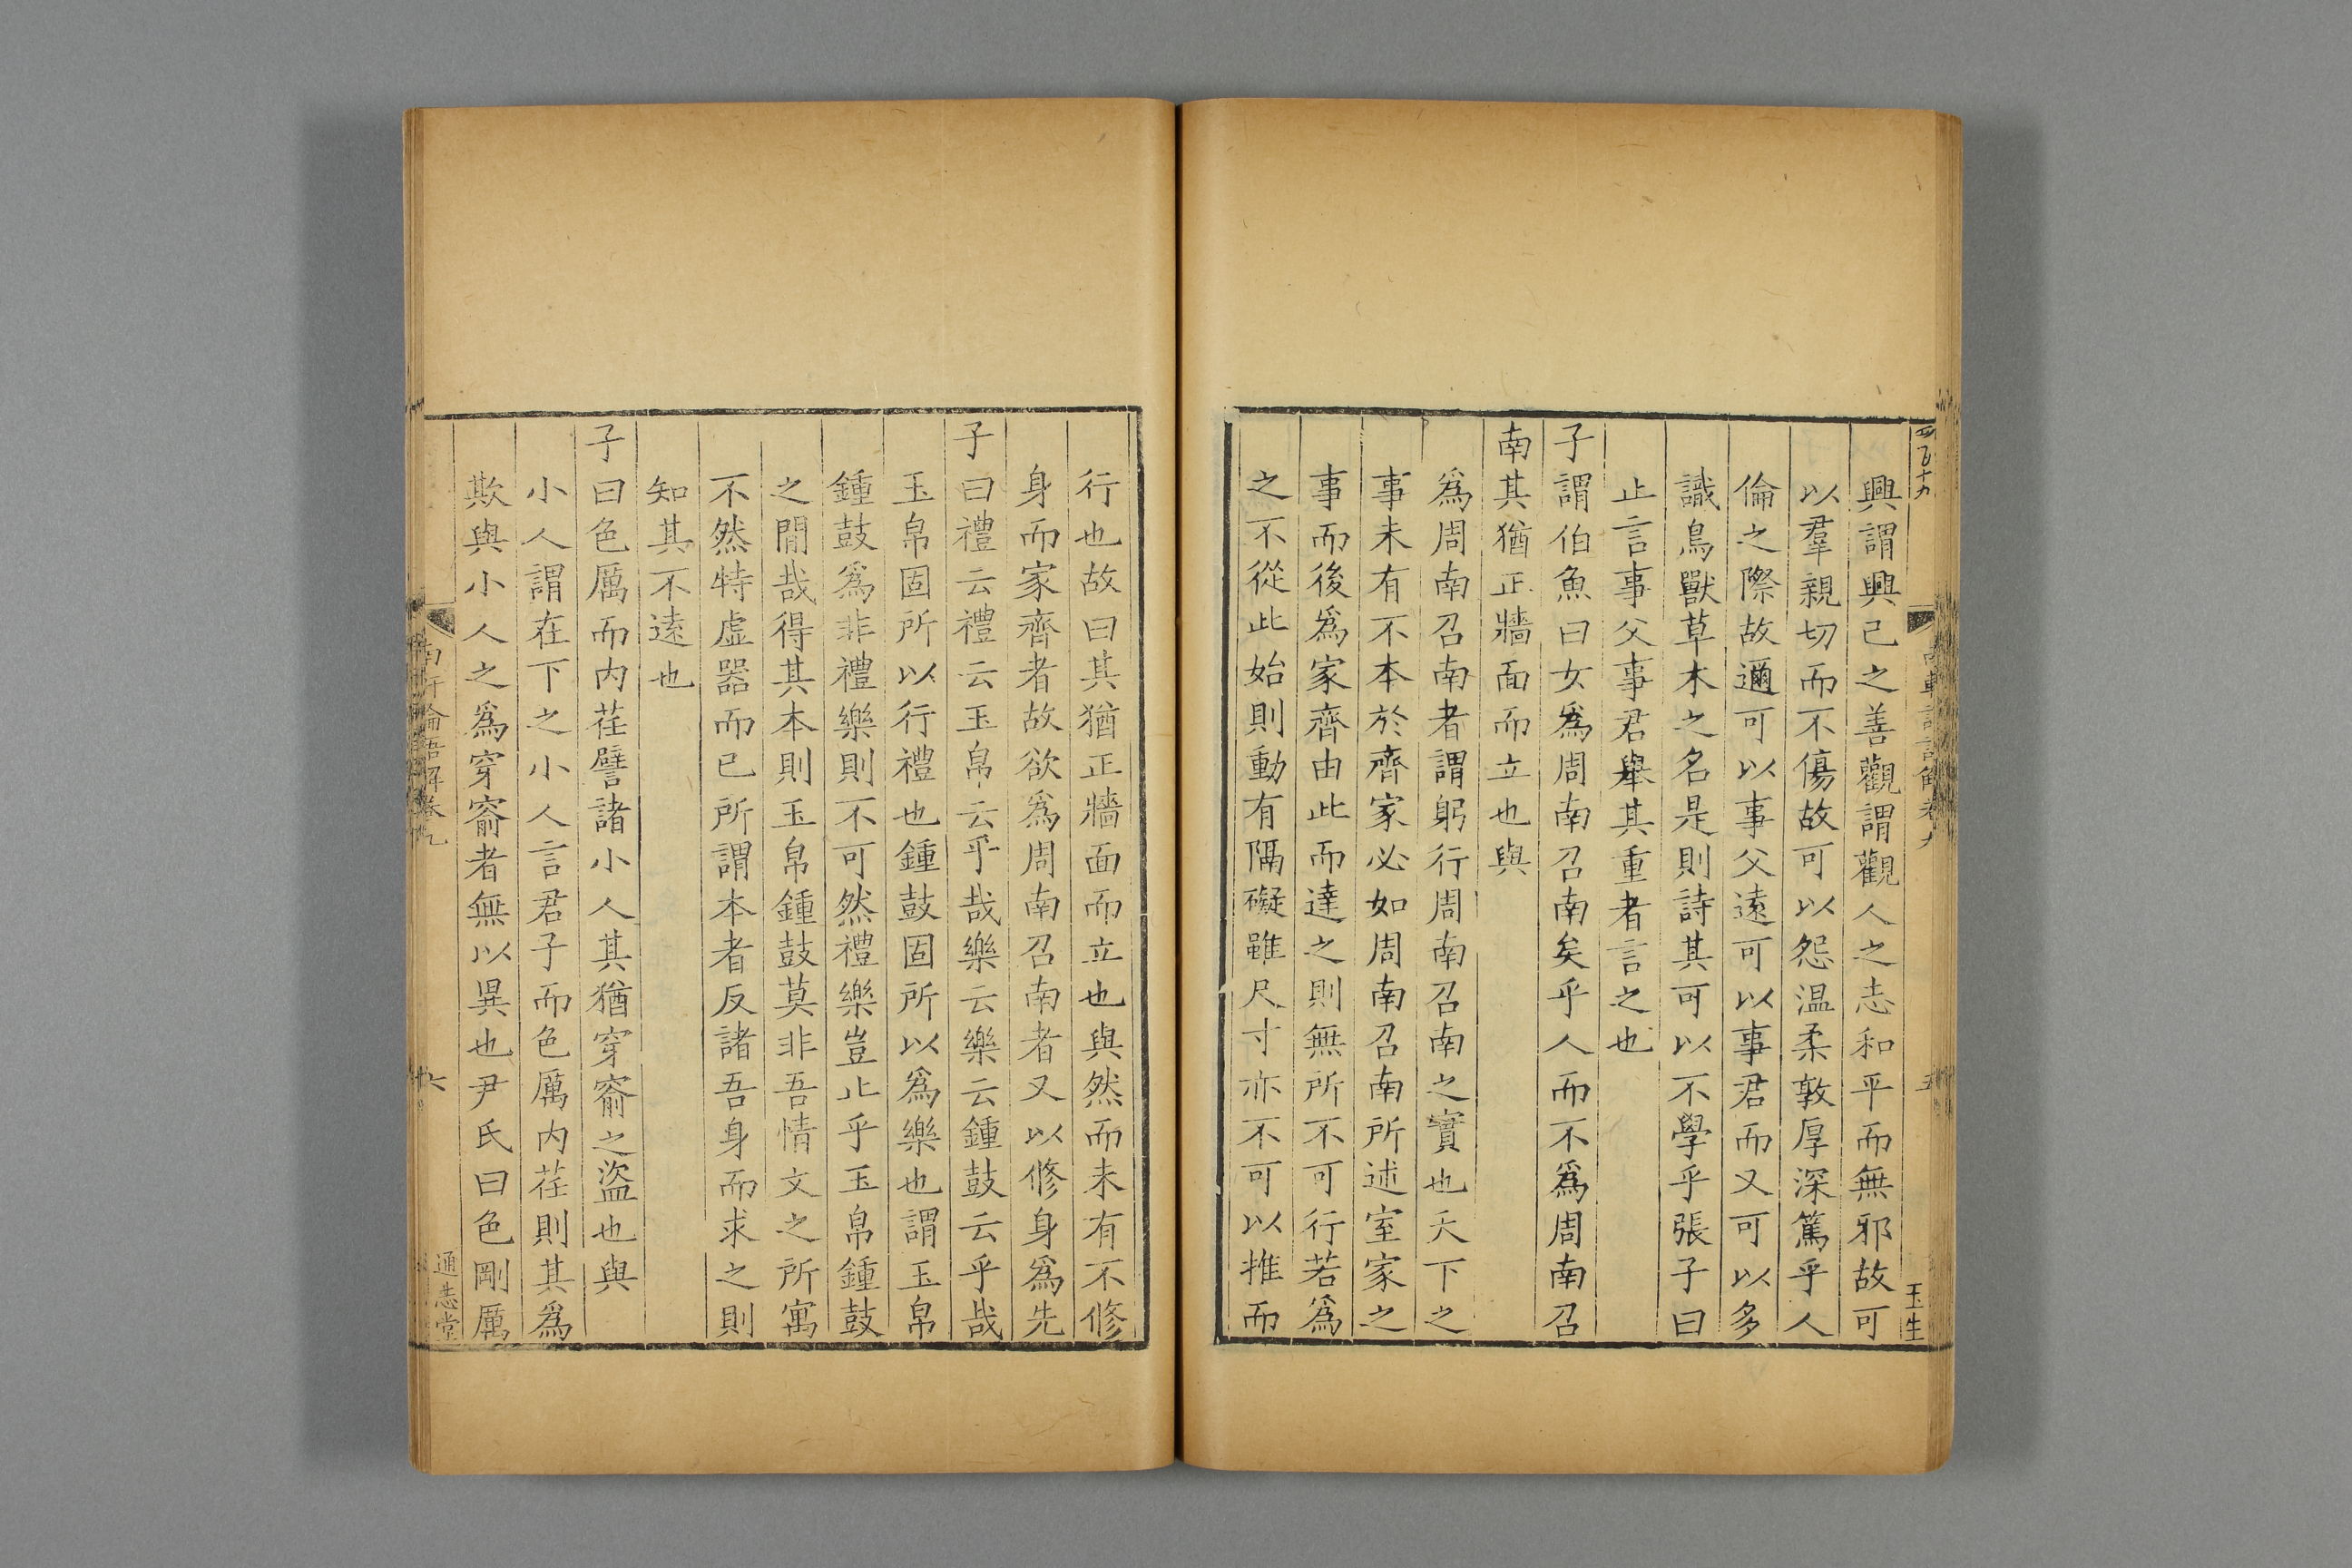 四百十九
南軒論語解卷九
五
玉生
興謂興己之善觀謂觀人之志和平而無邪故可
以羣親切而不傷故可以怨温柔敦厚深篤乎人
倫之際故邇可以事父遠可以事君而又可以多
識鳥獸草木之名是則詩其可以不學乎張子曰
止言事父事君舉其重者言之也
子謂伯魚曰女爲周南召南矣乎人而不爲周南召
南其猶正牆面而立也與
爲周南召南者謂躬行周南召南之實也天下之
事未有不本於齊家必如周南召南所述室家之
事而後爲家齊由此而達之則無所不可行若爲
之不從此始則動有隔礙雖尺寸亦不可以推而
行也故曰其猶正牆面而立也與然而未有不修
身而家齊者故欲爲周南召南者又以修身爲先
子曰禮云禮云玉帛云乎哉樂云樂云鍾鼓云乎哉
玉帛固所以行禮也鍾鼓固所以爲樂也謂玉帛
鍾鼓爲非禮樂則不可然禮樂豈止乎玉帛鍾鼓
之閒哉得其本則玉帛鍾鼓莫非吾情文之所寓
不然特虛器而已所謂本者反諸吾身而求之則
知其不遠也
子曰色厲而内荏譬諸小人其猶穿窬之盜也與
小人謂在下之小人言君子而色厲内荏則其爲
欺與小人之爲穿窬者無以異也尹氏曰色剛厲
南軒論語解卷九
六
通志堂